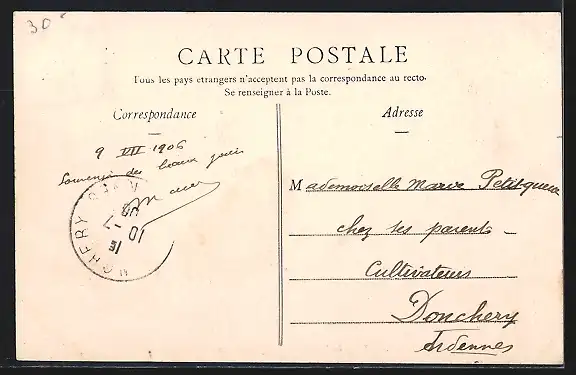 30
CARTE POSTALE
Tous les pays etrangers n'acceptent pas la correspondance au recto.
Se renseigner à la Poste.
Correspondance
9 VII 1906
Souvenir des beaux jours
CHERY
10 -7
Adresse
Mademoiselle Marie Petit
chez ses parents
Cultivateurs
Donchery
Ardennes